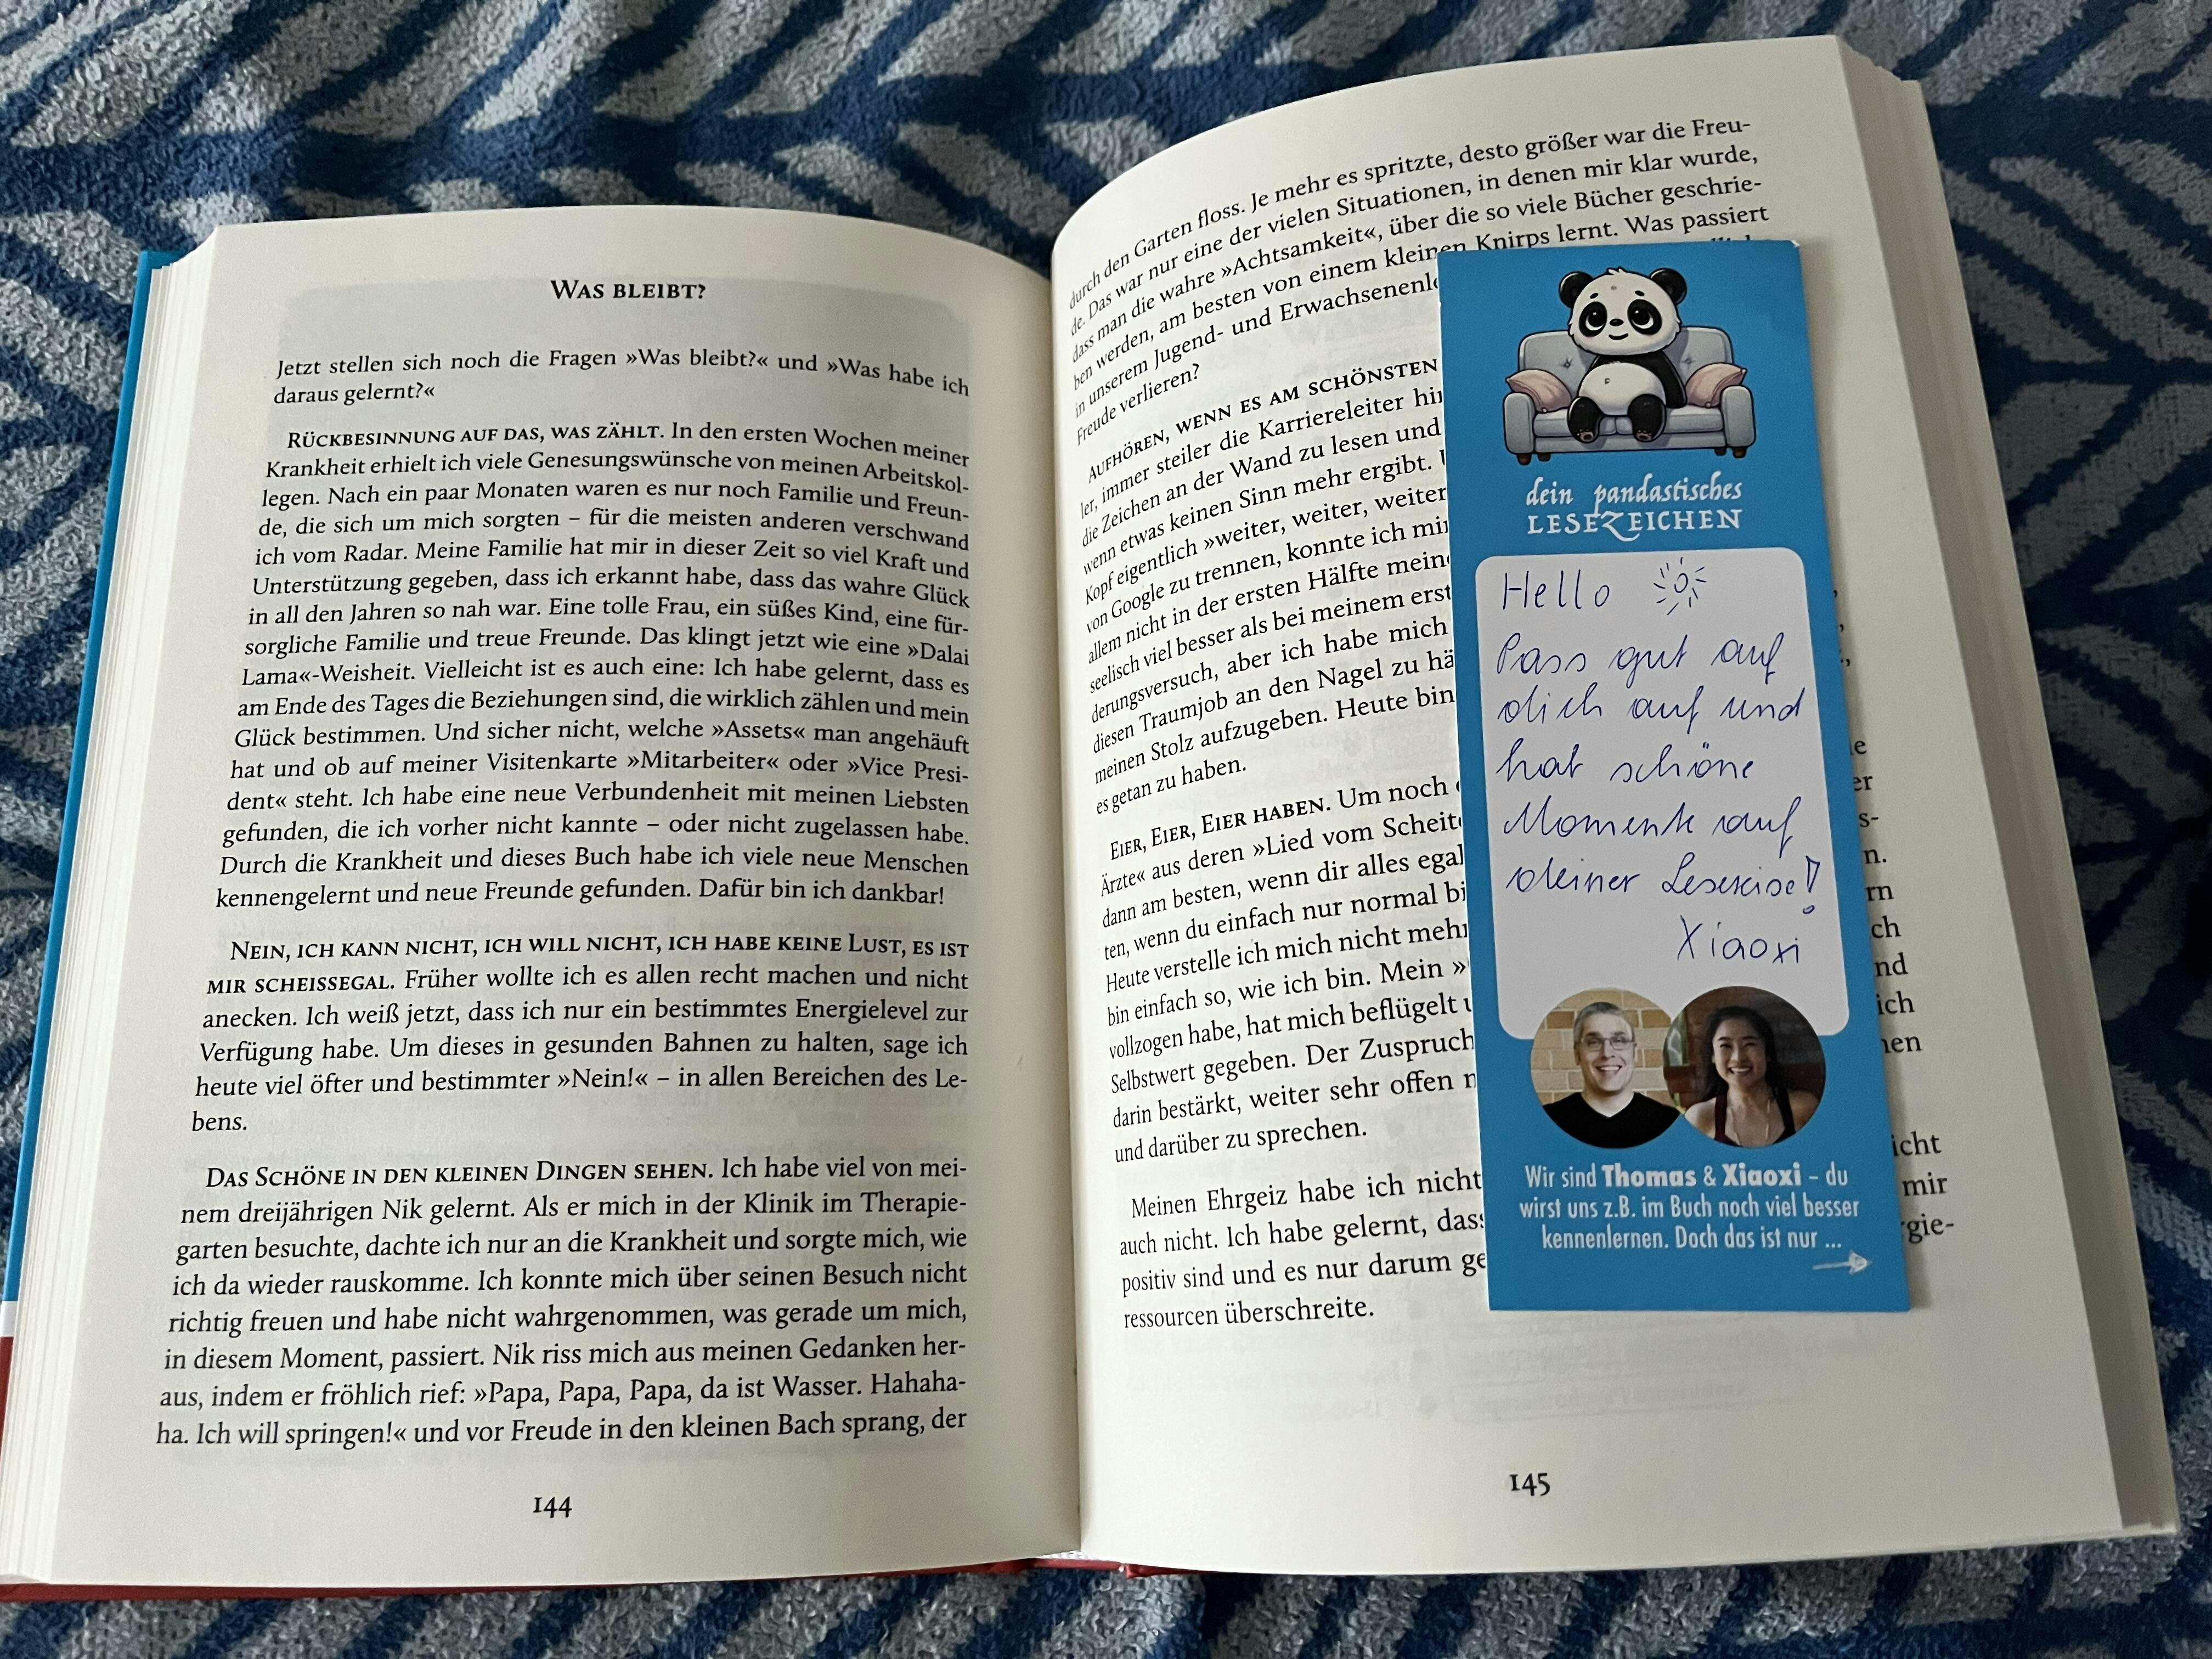 WAS BLEIBT?
Jetzt stellen sich noch die Fragen »Was bleibt?« und »Was habe ich
daraus gelernt?«
RÜCKBESINNUNG AUF DAS, WAS ZÄHLT. In den ersten Wochen meiner
Krankheit erhielt ich viele Genesungswünsche von meinen Arbeitskol-
legen. Nach ein paar Monaten waren es nur noch Familie und Freun-
de, die sich um mich sorgten – für die meisten anderen verschwand
ich vom Radar. Meine Familie hat mir in dieser Zeit so viel Kraft und
Unterstützung gegeben, dass ich erkannt habe, dass das wahre Glück
in all den Jahren so nah war. Eine tolle Frau, ein süßes Kind, eine für-
sorgliche Familie und treue Freunde. Das klingt jetzt wie eine »Dalai
Lama«-Weisheit. Vielleicht ist es auch eine: Ich habe gelernt, dass es
am Ende des Tages die Beziehungen sind, die wirklich zählen und mein
Glück bestimmen. Und sicher nicht, welche »Assets« man angehäuft
hat und ob auf meiner Visitenkarte »Mitarbeiter« oder »Vice Presi-
dent« steht. Ich habe eine neue Verbundenheit mit meinen Liebsten
gefunden, die ich vorher nicht kannte – oder nicht zugelassen habe.
Durch die Krankheit und dieses Buch habe ich viele neue Menschen
kennengelernt und neue Freunde gefunden. Dafür bin ich dankbar!
NEIN, ICH KANN NICHT, ICH WILL NICHT, ICH HABE KEINE LUST, ES IST
MIR SCHEISSEGAL. Früher wollte ich es allen recht machen und nicht
anecken. Ich weiß jetzt, dass ich nur ein bestimmtes Energielevel zur
Verfügung habe. Um dieses in gesunden Bahnen zu halten, sage ich
heute viel öfter und bestimmter »Nein!« – in allen Bereichen des Le-
bens.
DAS SCHÖNE IN DEN KLEINEN DINGEN SEHEN. Ich habe viel von mei-
nem dreijährigen Nik gelernt. Als er mich in der Klinik im Therapie-
garten besuchte, dachte ich nur an die Krankheit und sorgte mich, wie
ich da wieder rauskomme. Ich konnte mich über seinen Besuch nicht
richtig freuen und habe nicht wahrgenommen, was gerade um mich,
in diesem Moment, passiert. Nik riss mich aus meinen Gedanken her-
aus, indem er fröhlich rief: »Papa, Papa, Papa, da ist Wasser. Hahaha-
ha. Ich will springen!« und vor Freude in den kleinen Bach sprang, der
144
durch den Garten floss. Je mehr es spritzte, desto größer war die Freu-
de. Das war nur eine der vielen Situationen, in denen mir klar wurde,
dass man die wahre »Achtsamkeit«, über die so viele Bücher geschrie-
ben werden, am besten von einem kleinen Knirps lernt. Was passiert
in unserem Jugend- und
Freude verlieren?
AUFHÖREN, WENN ES AM SCHÖNSTEN
ler, immer steiler die Karriereleiter
die Zeichen an der Wand zu lesen und
wenn etwas keinen Sinn mehr ergibt.
Kopf eigentlich »weiter, weiter, weiter
von Google zu trennen, konnte ich
allem nicht in der ersten Hälfte
seelisch viel besser als bei meinem
derungsversuch, aber ich habe mich
diesen Traumjob an den Nagel zu
meinen Stolz aufzugeben. Heute bin
es getan zu haben.
EIER, EIER, EIER HABEN. Um noch
Ärzte« aus deren »Lied vom
dann am besten, wenn dir alles egal
ten, wenn du einfach nur normal
Heute verstelle ich mich nicht mehr
bin einfach so, wie ich bin. Mein »
vollzogen habe, hat mich beflügelt
Selbstwert gegeben. Der Zuspruch
darin bestärkt, weiter sehr offen
und darüber zu sprechen.
Meinen Ehrgeiz habe ich nicht
auch nicht. Ich habe gelernt, dass
positiv sind und es nur darum
ressourcen überschreite.
mir
gie-
145
dein pandastisches
LESEZEICHEN
Hello
Pass gut auf
dich auf und
hab schöne
Momente auf
deiner Lesereise!
Xiaoxi
Wir sind Thomas & Xiaoxi – du
wirst uns z.B. im Buch noch viel besser
kennenlernen. Doch das ist nur ...